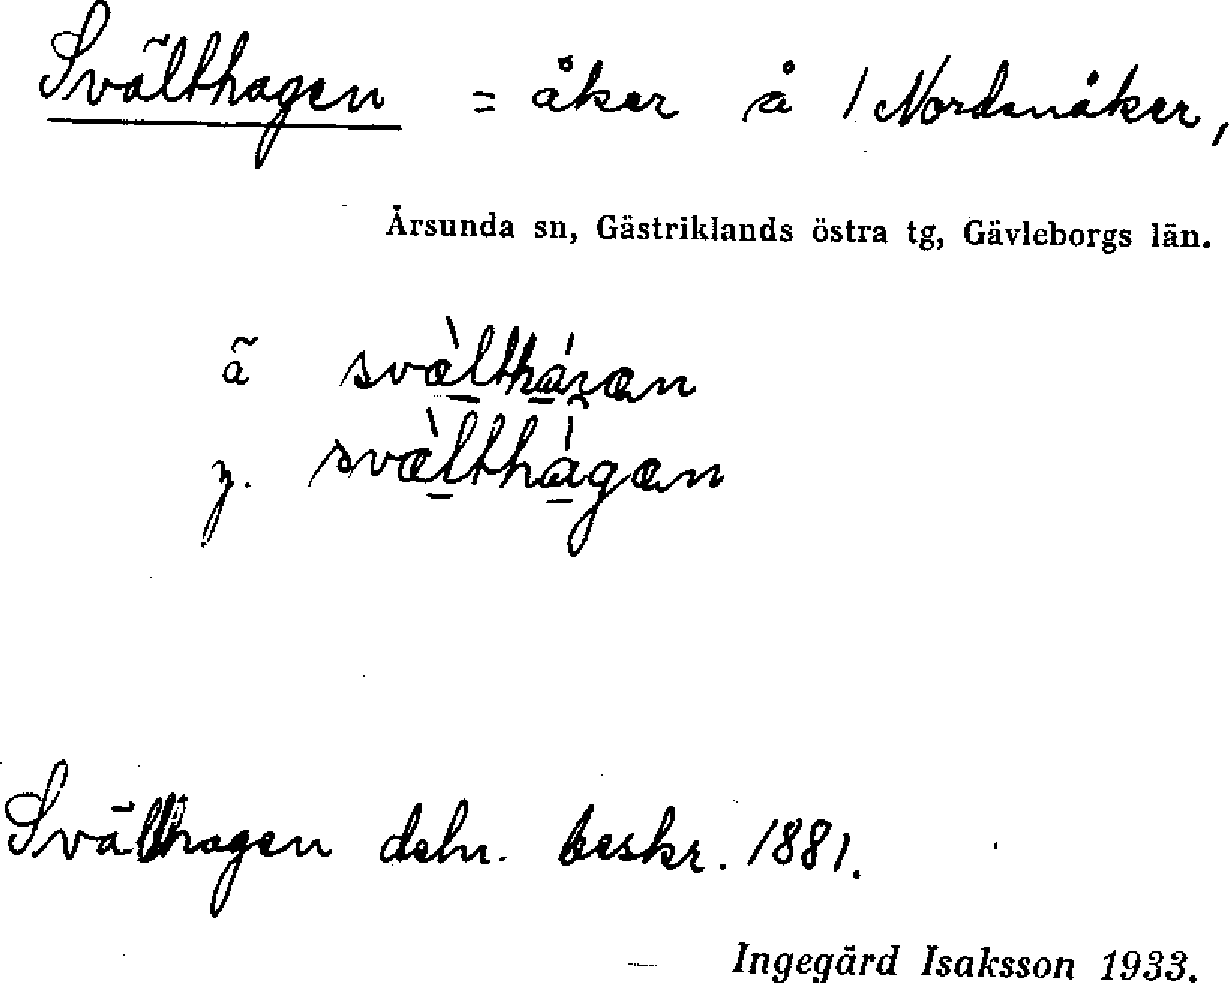 Svälthagen = åker å 1 Nordanåker,
Årsunda sn, Gästriklands östra tg, Gävleborgs län.
ä svæ̀ltháɣæn
y. svæ̀lthágæn
Svälthagen deln. beskr. 1881.
Ingegärd Isaksson 1933.